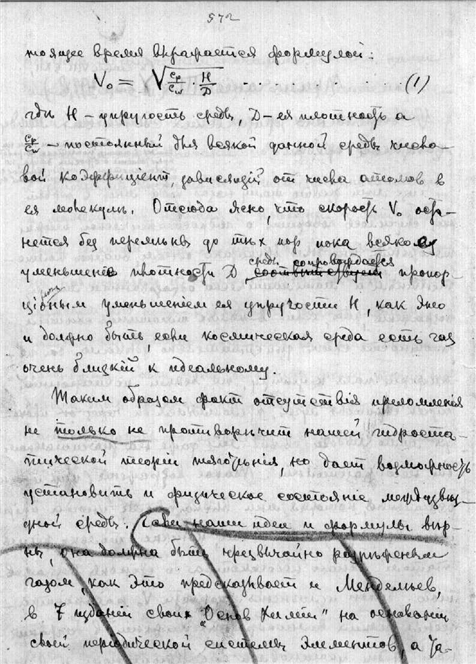 572
тоящее время выражается формулой:
V₀ = √(cₚ/cᵥ · H/D) . . . . . . . . (1)
гдѣ H – упругость среды, D – ея плотность а
cₚ/cᵥ – постоянный для всякой данной среды число-
вой коэффиціент, зависящій от числа атомов в
ея молекулѣ. Отсюда ясно, что скорость V₀ оста-
нется без перемѣны до тѣх пор пока всякому
уменьшенію плотности D среды сопровождается пропор
ціональным уменьшением ея упругости H, как это
и должно быть, если космическая среда есть газ
очень близкій к идеальному.
Таким образом факт отсутствія преломленія
не только не противорѣчит нашей гидроста-
тической теоріи тяготѣнія, но дает возможность
установить и физическое состояніе междузвѣз-
дной среды: если наши идеи и формулы вѣр-
ны, она должна быть чрезвычайно разрѣженным
газом как это предсказывает и Менделѣев,
в 7 изданіи своих „Основ Химіи" на основаніи
своей періодической системы элементов, а за-